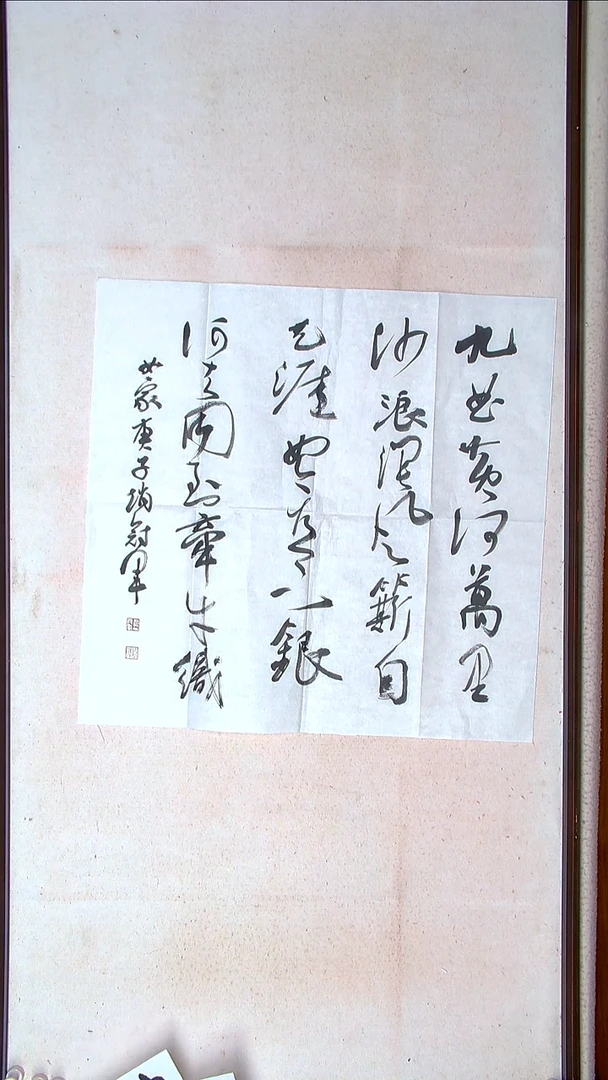 九曲黄河萬里
沙浪淘風簸自
天涯如今直上銀
河去同到牽牛織
女家庚子冠軍